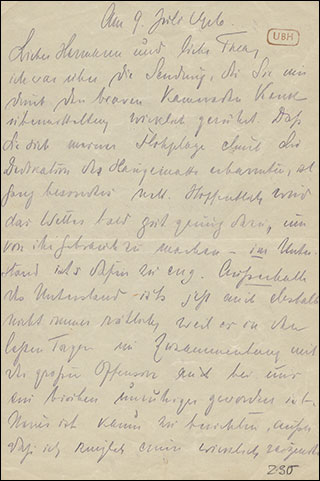 Am 9. Juli
UBH
Lieber Hermann und liebe Thea,
ich war über die Sendung, die Sie mir
durch den braven Kameraden
übermittelten wirklich gerührt. Daß
Sie sich meiner durch die
Dedication der Hängematte erbarmten, ist
ganz besonders nett. Hoffentlich wird
das Wetter bald gut genug dazu, um
von ihr Gebrauch zu machen – im Unter-
stand ist's dafür zu eng. Außerhalb
des Unterstand ist's jetzt auch deshalb
nicht immer rätlich weil es in den
letzten Tagen im Zusammenhang mit
der großen Offensive auch bei uns
ein bischen unruhiger geworden ist.
Neues ist kaum zu berichten, außer
daß ich einen wirklich
230